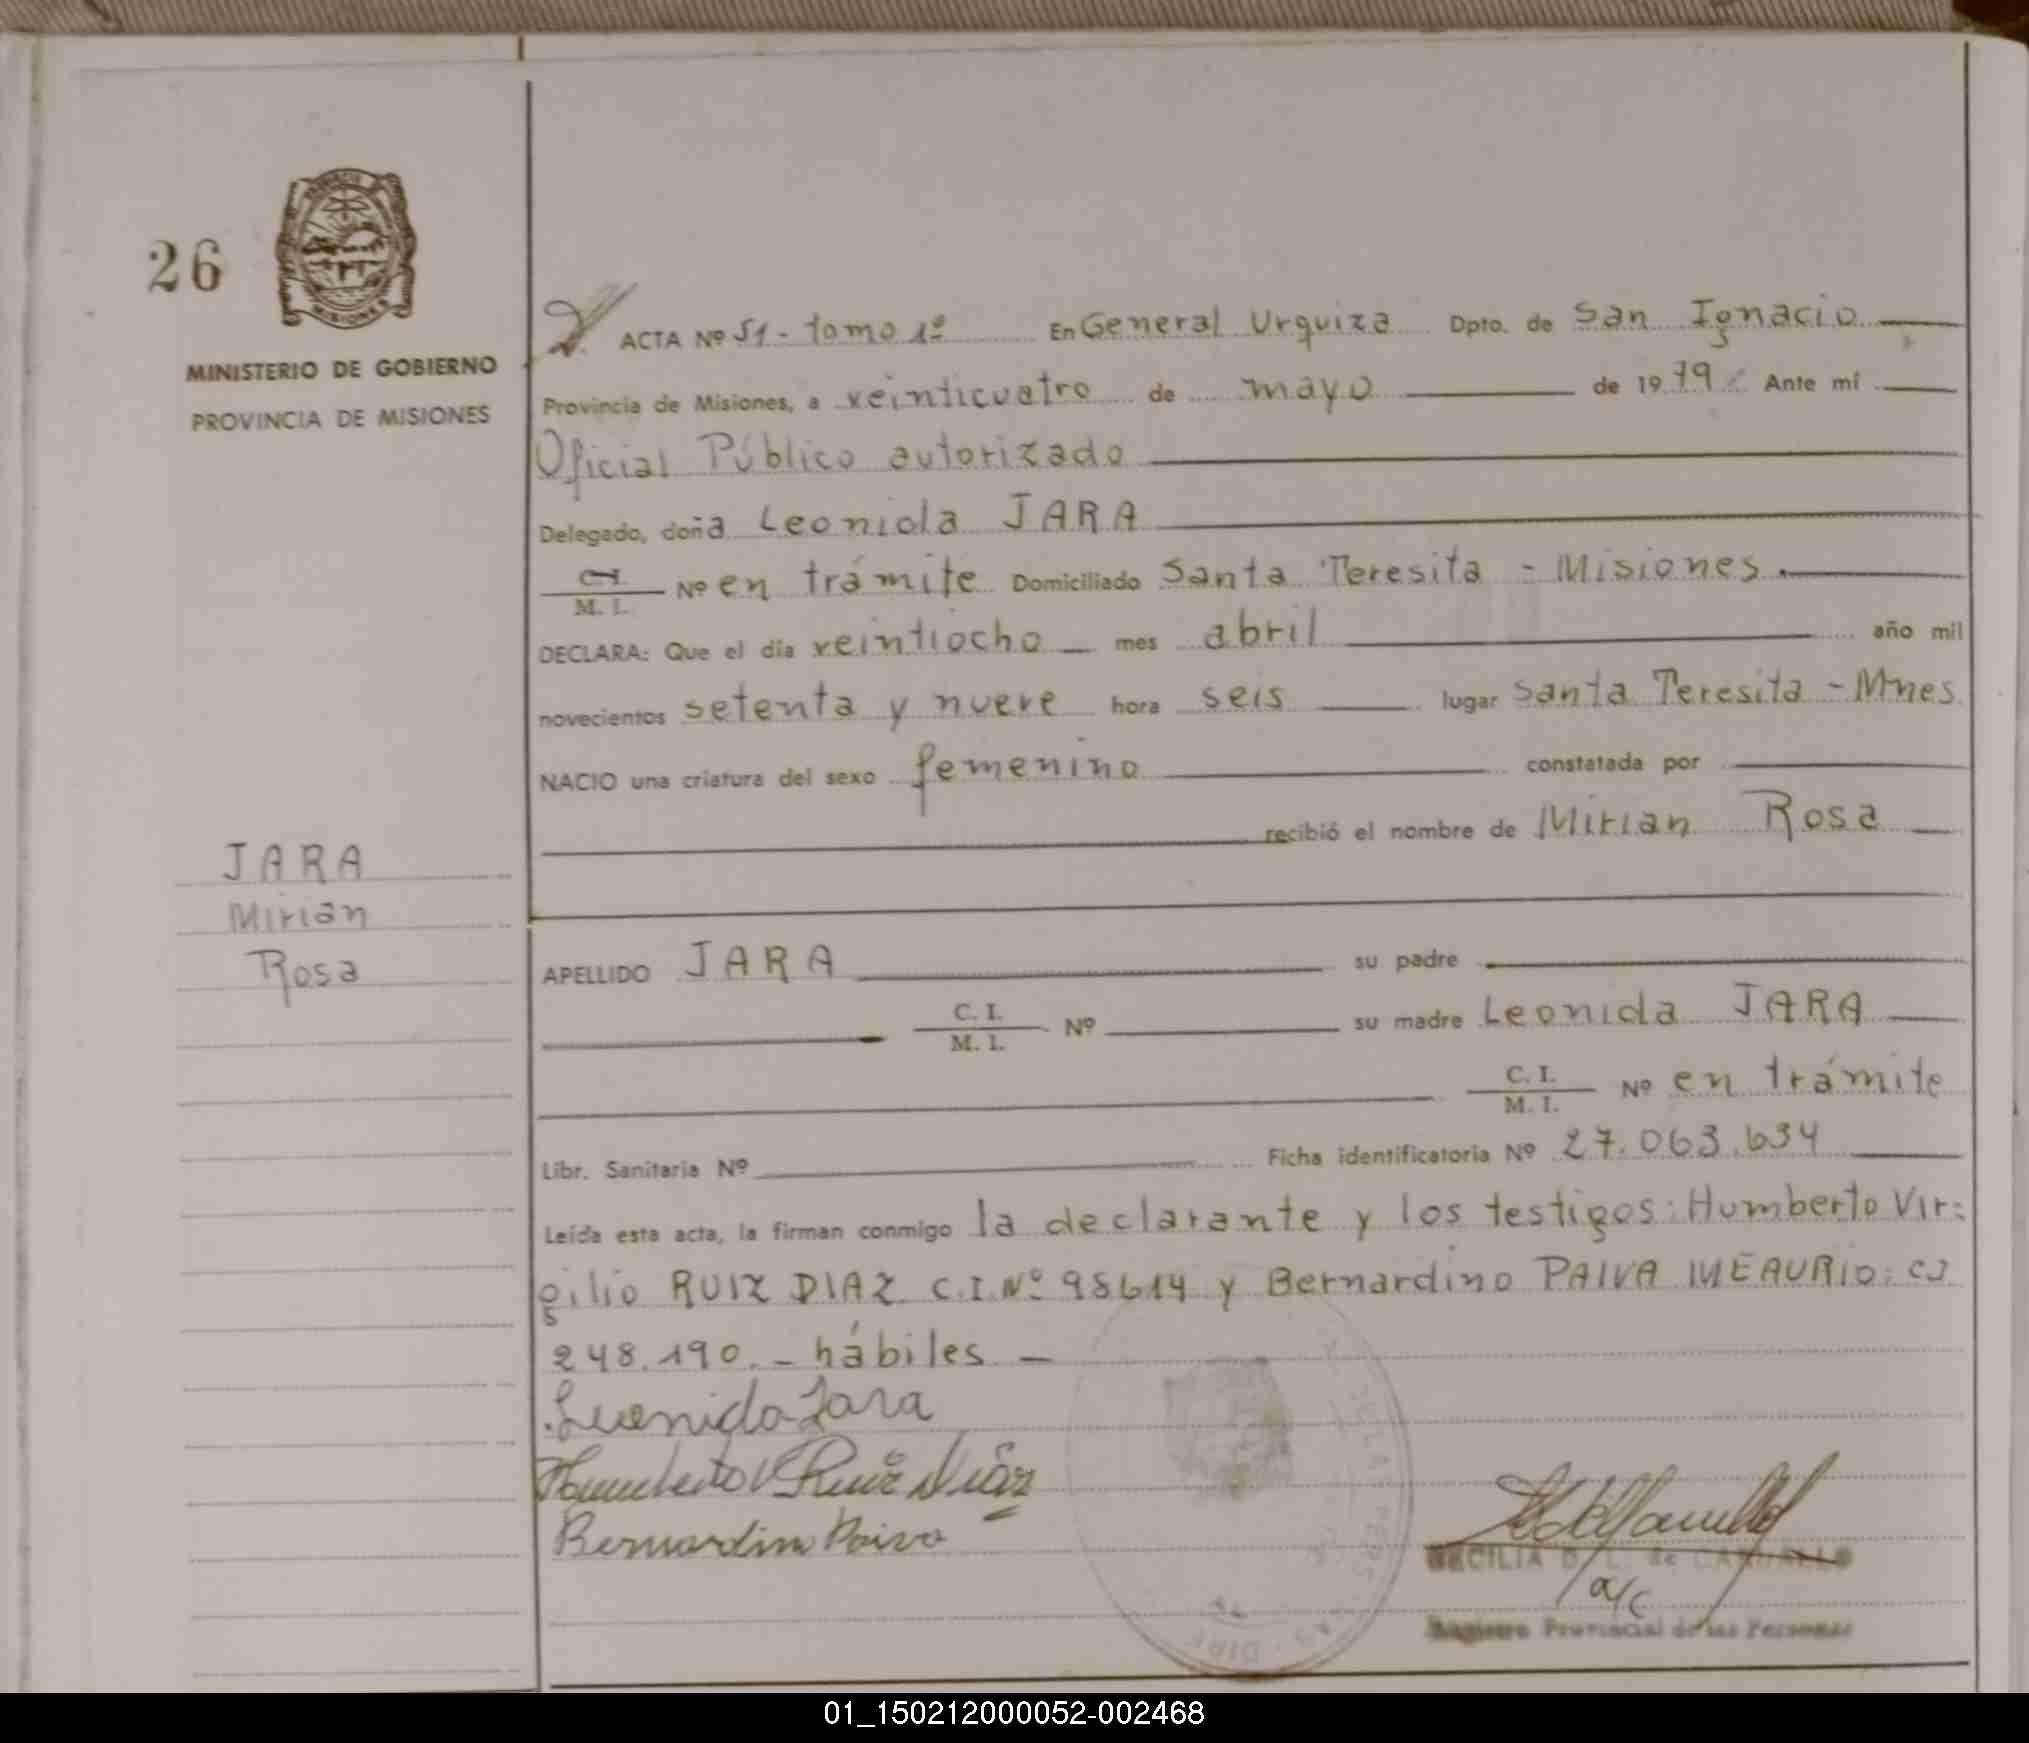 26
MISIONES
MINISTERIO DE GOBIERNO
PROVINCIA DE MISIONES
JARA
Mirian
Rosa
ACTA Nº 51 - tomo 1º En General Urquiza Dpto. de San Ignacio
Provincia de Misiones, a veinticuatro de mayo de 1979 Ante mí
Oficial Público autorizado
Delegado, doña Leonida JARA
C.I.
M. I. Nº en trámite Domiciliado Santa Teresita - Misiones.
DECLARA: Que el día veintiocho mes abril año mil
novecientos setenta y nueve hora seis lugar Santa Teresita - Mnes
NACIO una criatura del sexo femenino constatada por
recibió el nombre de Mirian Rosa
APELLIDO JARA su padre
C. I.
M. I. Nº su madre Leonida JARA
C. I.
M. I. Nº en trámite
Libr. Sanitaria Nº Ficha identificatoria Nº 27.063.634
Leída esta acta, la firman conmigo la declarante y los testigos: Humberto Vir=
gilio RUIZ DIAZ C.I.Nº 98614 y Bernardino PAIVA MEAURIO: CI
248.190. - hábiles -
Leonida Jara
Humberto V Ruiz Diaz
Bernardin Paiva
CECILIA D. L. de CARBALLO
a/c
Registro Provincial de las Personas
01_150212000052-002468